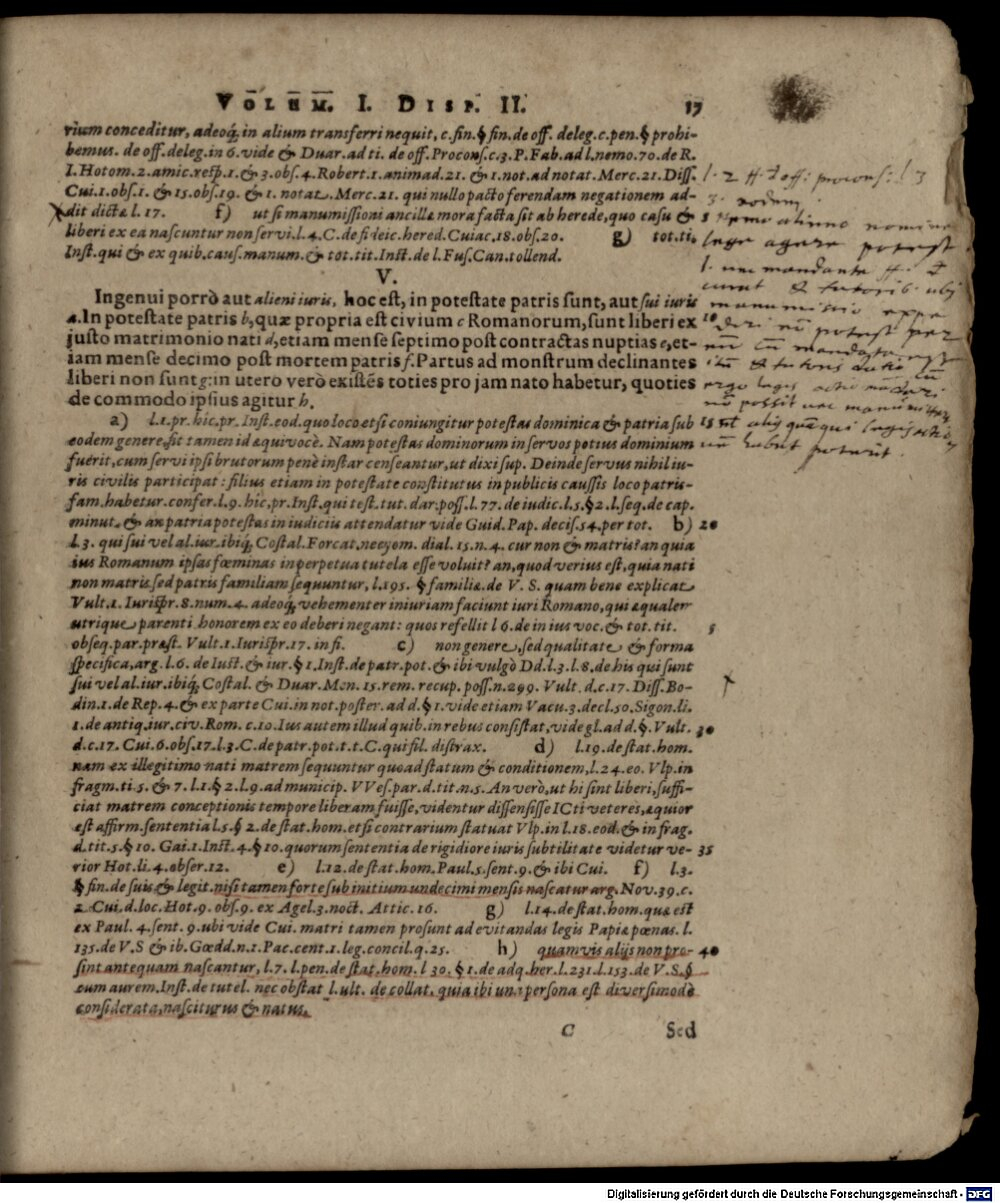 VOLUM. I. DISP. II. 17
rium conceditur, adeoq́, in alium transferri nequit, c. fin. § fin. de off. deleg. c. pen. § prohi-
bemus. de off. deleg. in 6. vide & Duar. ad ti. de off. Procons. c. 3. P. Fab. ad l. nemo. 70. de R.
I. Hotom. 2. amic. resp. 1. & 3. obs. 4. Robert. 1. animad. 21. & 1. not. ad notat. Merc. 21. Diss.
Cui. 1. obs. 1. & 15. obs. 19. & 1. notat. Merc. 21. qui nullo pacto ferendam negationem ad-
dit dictæ l. 17. f) ut si manumissioni ancillæ mora facta sit ab herede, quo casu &
liberi ex ea nascuntur non servi. l. 4. C. de fideic. hered. Cuiac. 18. obs. 20. g) tot. ti.
Inst. qui & ex quib. caus. manum. & tot. tit. Inst. de l. Fus. Can. tollend.
V.
Ingenui porrò aut alieni iuris, hoc est, in potestate patris sunt, aut sui iuris
a. In potestate patris b, quæ propria est civium c Romanorum, sunt liberi ex
justo matrimonio nati d, etiam mense septimo post contractas nuptias e, et-
iam mense decimo post mortem patris f. Partus ad monstrum declinantes
liberi non sunt g: in utero verò existẽs toties pro jam nato habetur, quoties
de commodo ipsius agitur h.
a) l. 1. pr. hic. pr. Inst. eod. quo loco etsi coniungitur potestas dominica & patria sub
eodem genere, sit tamen id æquivocè. Nam potestas dominorum in servos potius dominium
fuerit, cum servi ipsi brutorum penè instar censeantur, ut dixi sup. Deinde servus nihil iu-
ris civilis participat: filius etiam in potestate constitutus in publicis caussis loco patris-
fam. habetur. confer. l. 9. hic, pr. Inst. qui test. tut. dar. poss. l. 77. de iudic. l. 5. § 2. l. seq. de cap.
minut. & an patria potestas in iudiciis attendatur vide Guid. Pap. decis. 54. per tot. b) 20
l. 3. qui sui vel al. iur. ibiq́, Costal. Forcat. necyom. dial. 15. n. 4. cur non & matris? an quia
ius Romanum ipsas fœminas in perpetua tutela esse voluit? an, quod verius est, quia nati
non matris, sed patris familiam sequuntur, l. 195. § familiæ. de V. S. quam bene explicat
Vult. 1. Iurispr. 8. num. 4. adeoq́, vehementer iniuriam faciunt iuri Romano, qui æqualem
utrique parenti honorem ex eo deberi negant: quos refellit l 6. de in ius voc. & tot. tit. 5
obseq. par. præst. Vult. 1. Iurispr. 17. in fi. c) non genere, sed qualitate & forma
specifica, arg. l. 6. de Iust. & iur. § 1. Inst. de patr. pot. & ibi vulgò Dd. l. 3. l. 8. de his qui sunt
sui vel al. iur. ibiq́, Costal. & Duar. Men. 15. rem. recup. poss. n. 299. Vult. d. c. 17. Diss. Bo-
din. 1. de Rep. 4. & ex parte Cui. in not. poster. ad d. § 1. vide etiam Vacu. 3. decl. 50. Sigon. li.
1. de antiq. iur. civ. Rom. c. 10. Ius autem illud quib. in rebus consistat, vide gl. ad d. §. Vult. 30
d. c. 17. Cui. 6. obs. 17. l. 3. C. de patr. pot. t. t. C. qui fil. distrax. d) l. 19. de stat. hom.
nam ex illegitimo nati matrem sequuntur quoad statum & conditionem, l. 24. eo. Vlp. in
fragm. ti. 5. & 7. l. 1. § 2. l. 9. ad municip. VVes. par. d. tit. n. 5. An verò, ut hi sint liberi, suffi-
ciat matrem conceptionis tempore liberam fuisse, videntur dissensisse ICti veteres, æquior
est affirm. sententia l. 5. § 2. de stat. hom. etsi contrarium statuat Vlp. in l. 18. eod. & in frag.
d. tit. 5. § 10. Gai. 1. Inst. 4. § 10. quorum sententia de rigidiore iuris subtilitate videtur ve- 35
rior Hot. li. 4. obser. 12. e) l. 12. de stat. hom. Paul. 5. sent. 9. & ibi Cui. f) l. 3.
§ fin. de suis & legit. nisi tamen forte sub initium undecimi mensis nascatur arg. Nov. 39. c.
2. Cui. d. loc. Hot. 9. obs. 9. ex Agel. 3. noct. Attic. 16. g) l. 14. de stat. hom. quæ est
ex Paul. 4. sent. 9. ubi vide Cui. matri tamen prosunt ad evitandas legis Papiæ pœnas. l.
135. de V. S & ib. Gœdd. n. 1. Pac. cent. 1. leg. concil. q. 25. h) quamvis alijs non pro- 40
sint antequam nascantur, l. 7. l. pen. de stat. hom. l 30. § 1. de adq. her. l. 231. l. 153. de V. S. §
cum autem. Inst. de tutel. nec obstat l. ult. de collat. quia ibi una persona est diversimodè
considerata, nasciturus & natus.
C Sed
l. 2 ff. d off: procons: l 3
3. eodem
5 Nemo alieno nomine
lege agere potest
10
15